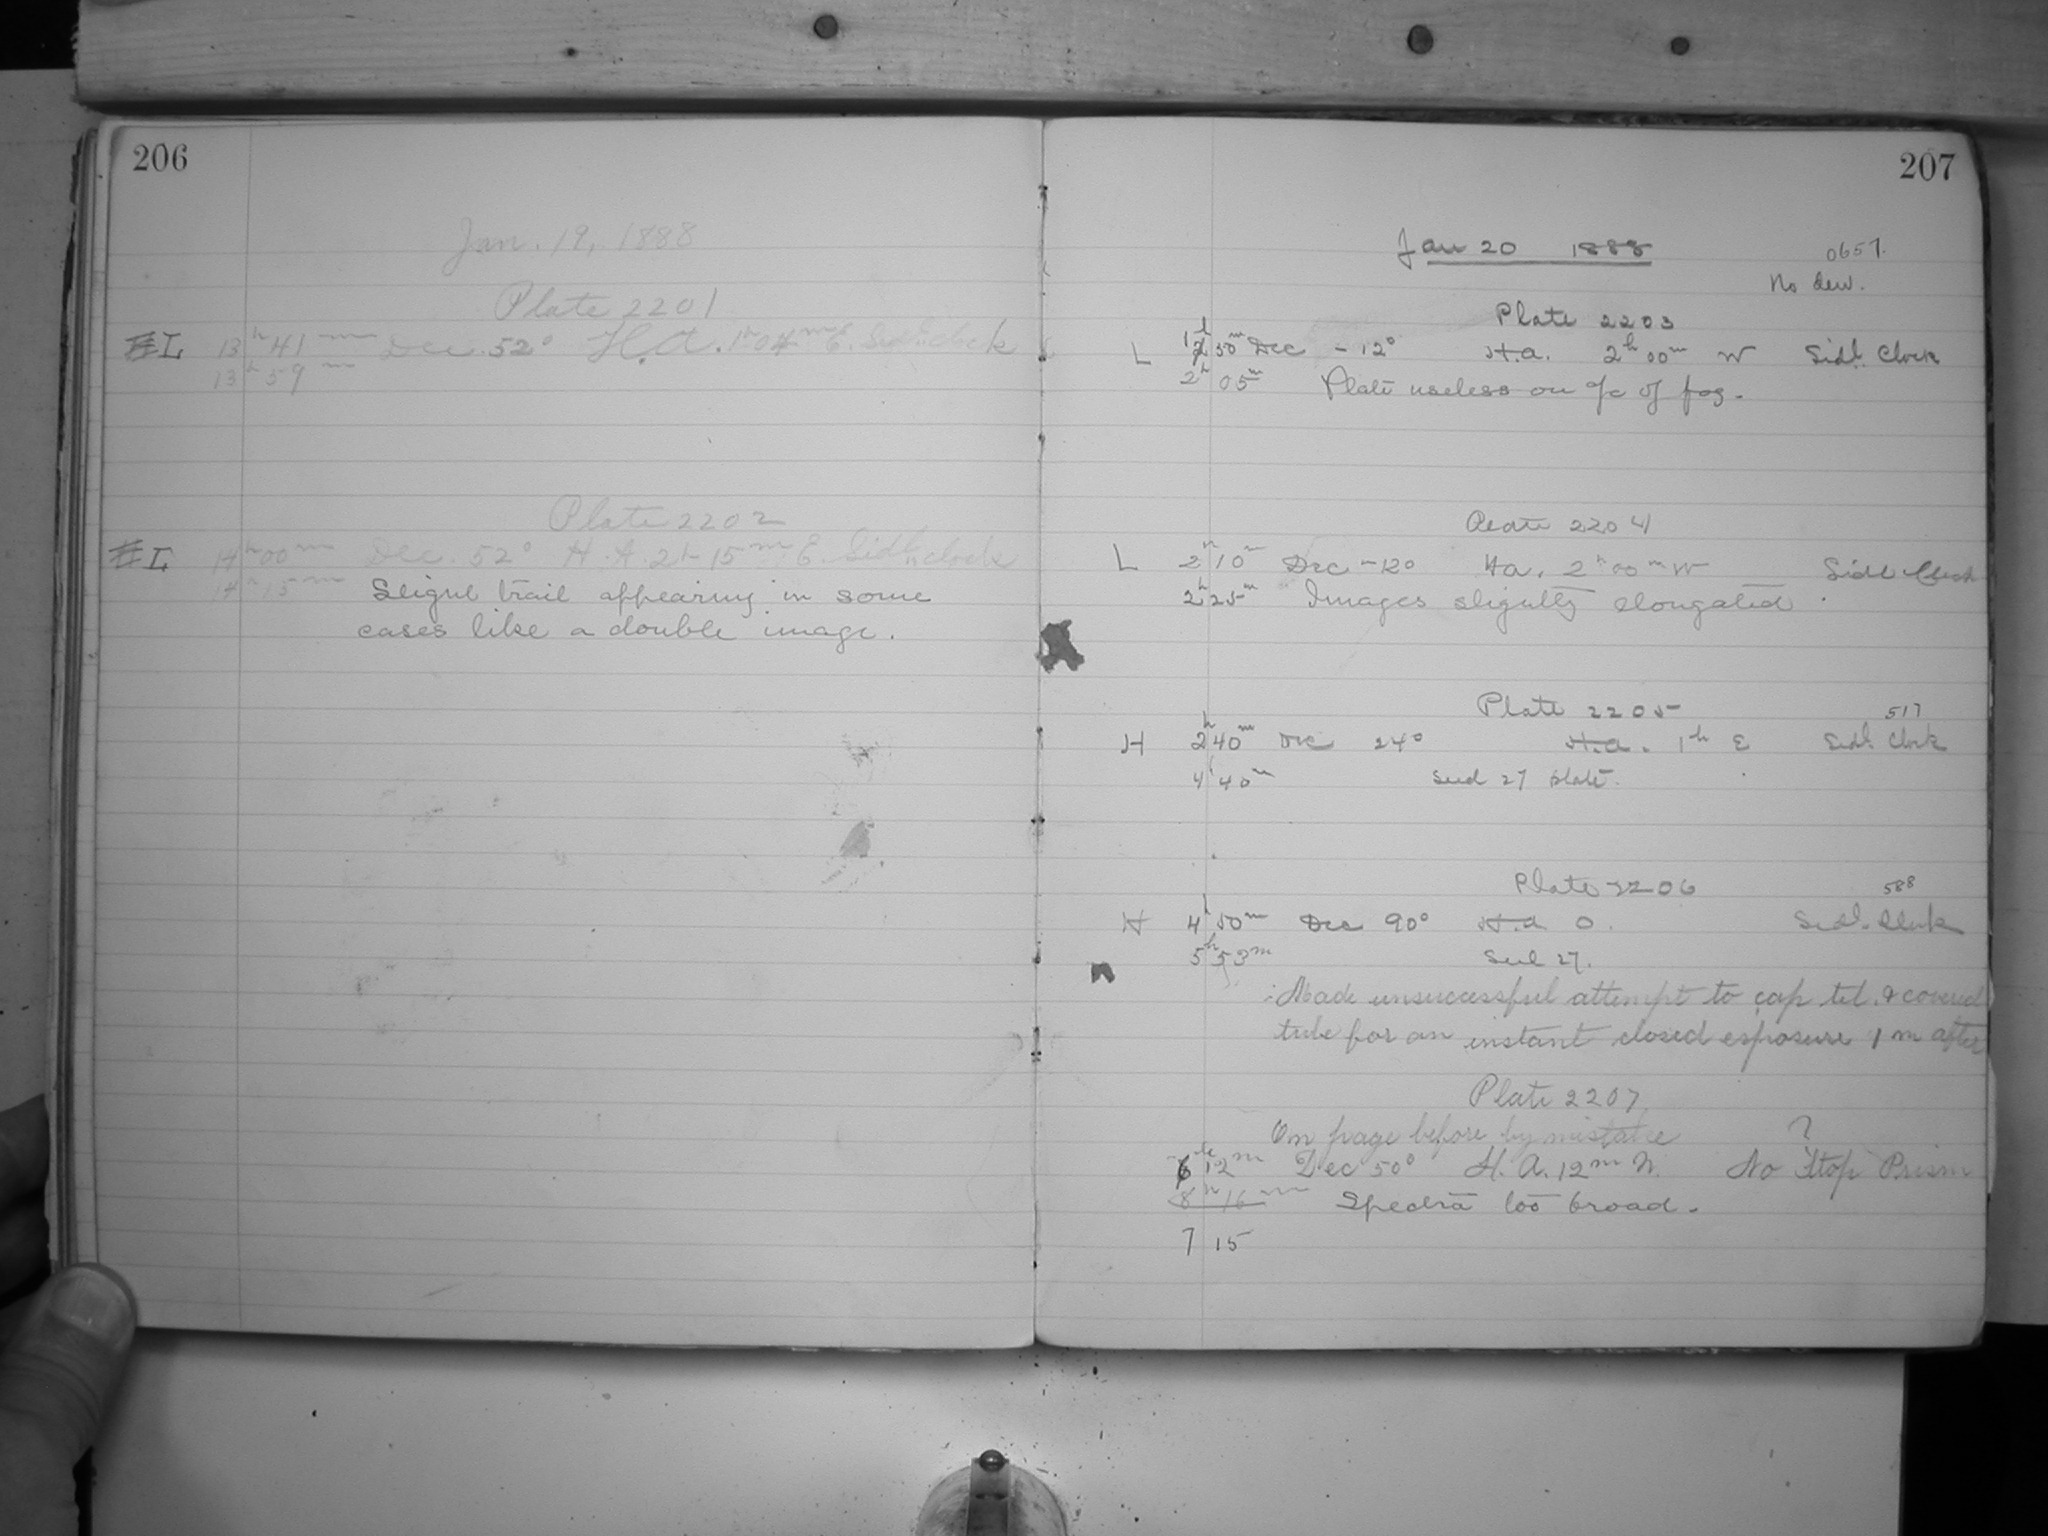 206
Jan. 19, 1888
Plate 2201
L 13h 41m Dec. 52° H.A. 1h 04m E. Sidl. clock
13h 59m
Plate 2202
L 14h 00m Dec. 52° H.A. 2h 15m E. Sidl. clock
14h 15m Slight trail appearing in some
cases like a double image.
207
Jan 20 1888 0657.
No dew.
Plate 2203
L 1h 50m Dec -12° H.a. 2h 00m W Sidl. Clock
2h 05m Plate useless on a/c of fog.
Plate 2204
L 2h 10m Dec -12° Ha. 2h 00m W Sidl Clock
2h 25m Images slightly elongated.
Plate 2205 517
H 2h 40m Dec 24° H.a. 1h E Sidl. Clock
4h 40m Seed 27 plate.
Plate 2206 588
H 4h 50m Dec 90° H.a 0. Sidl. Clock
5h 53m Seed 27.
Made unsuccessful attempt to cap tel. & covered
tube for an instant closed exposure 1 m after
Plate 2207
On page before by mistake ?
6h 12m Dec 50° H.A. 12m W. No Stop Prism
8h 16m Spectra too broad.
7 15